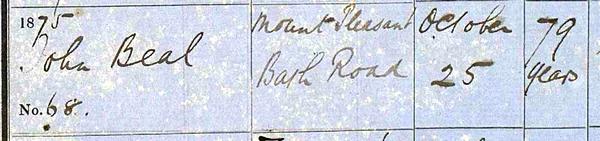 1875 Mount Pleasant October 79
John Beal Bath Road 25 years
No. 68.